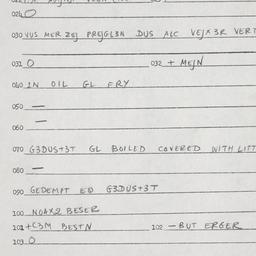 024 O
030 VUS MER ZEJ PREJGL3N DUS ALC VEJX 3R VERT
031 O 032 + MEJN
040 IN OIL GL FRY
050 —
060 —
070 G3DUS+3T GL BOILED COVERED WITH LITT
080 —
090 GEDEMPT EQ G3DUS+3T
100 NOAX2 BESER
101 +C3M BESTN 102 — BUT ERGER
103 O